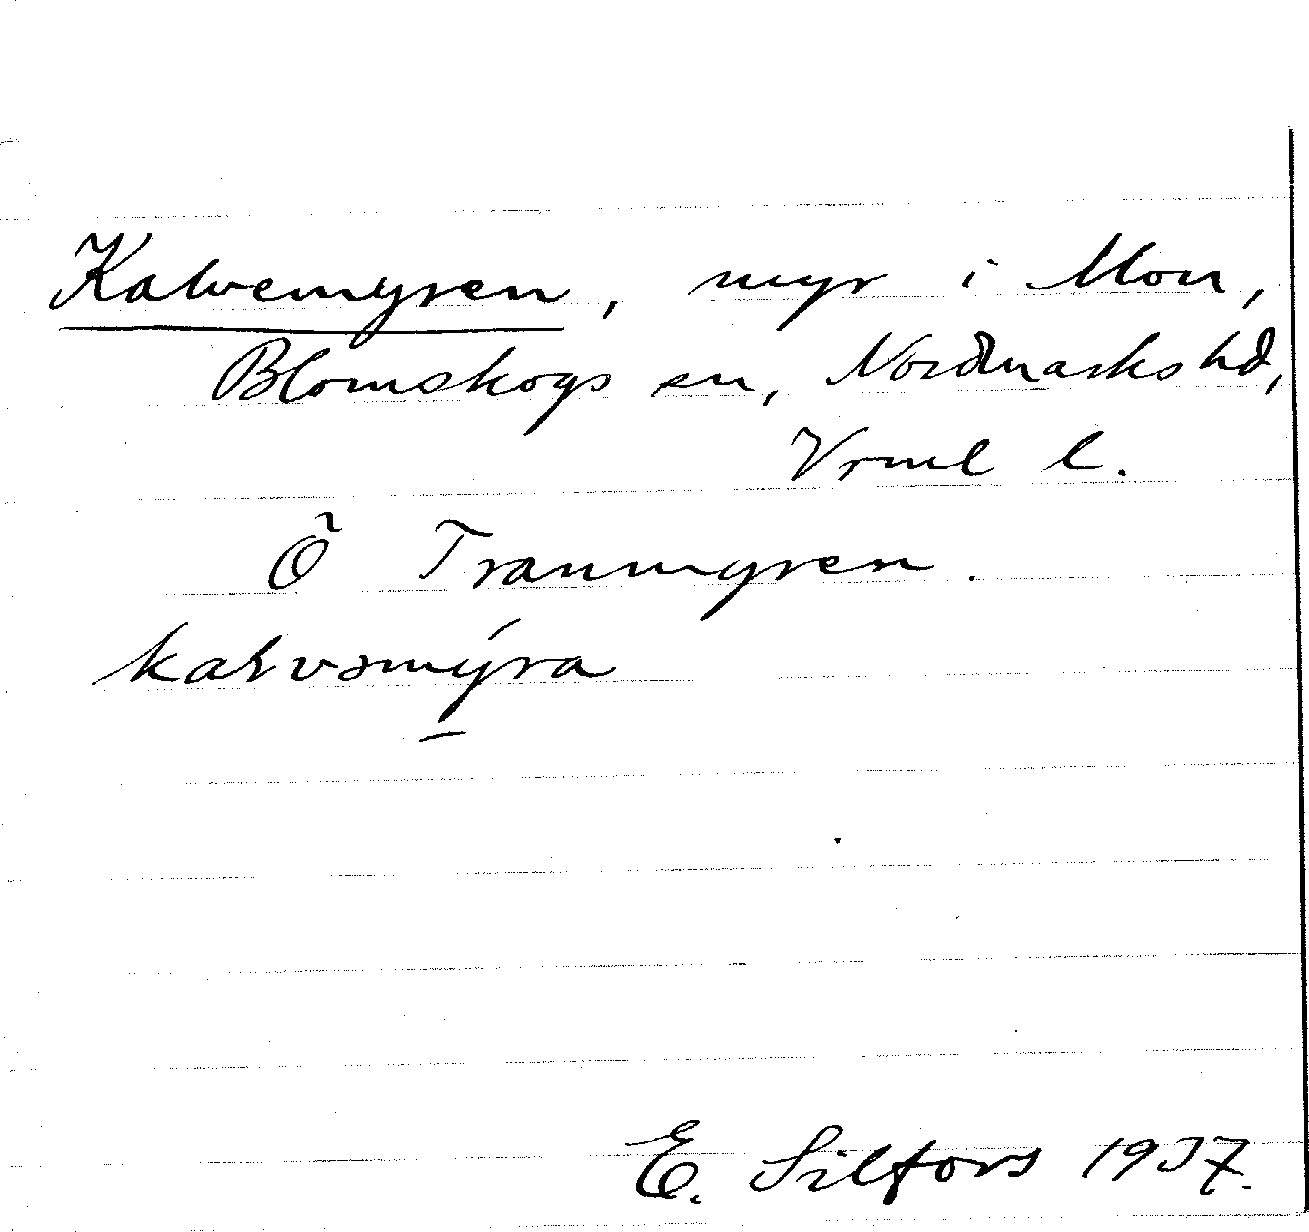 Kalvemyren, myr i Mon,
Blomskogs sn, Nordmarks hd,
Vrml l.
Õ Tranmyren.
kaɫvəmýra
E. Silfors 1937.